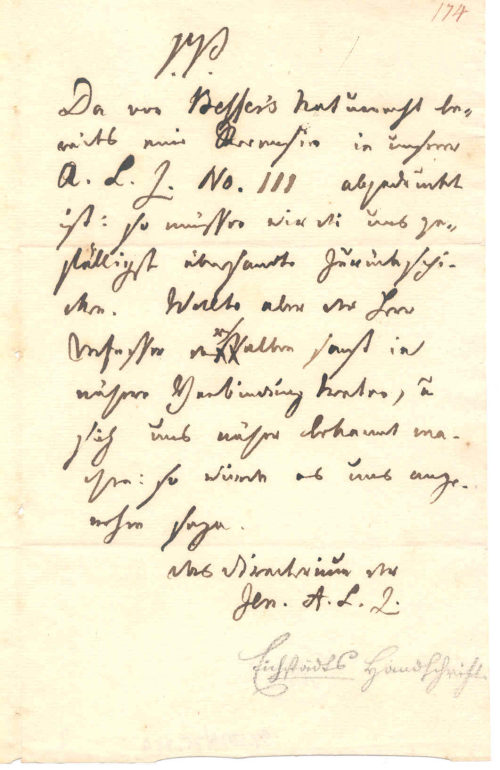 174
P.P.
Da von Besser's Naturrecht be-
reits eine Recension in unserer
A. L. Z. No. 111 abgedruckt
ist: so müssen wir die uns ge-
fälligst übersandte zurückschi-
cken. Wollte aber der Herr
Verfasser derselben sonst in
nähere Verbindung treten, u
sich uns näher bekannt ma-
chen: so würde es uns ange-
nehm seyn.
das Directorium der
Jen. A. L. Z.
Eichstädts Handschrift.